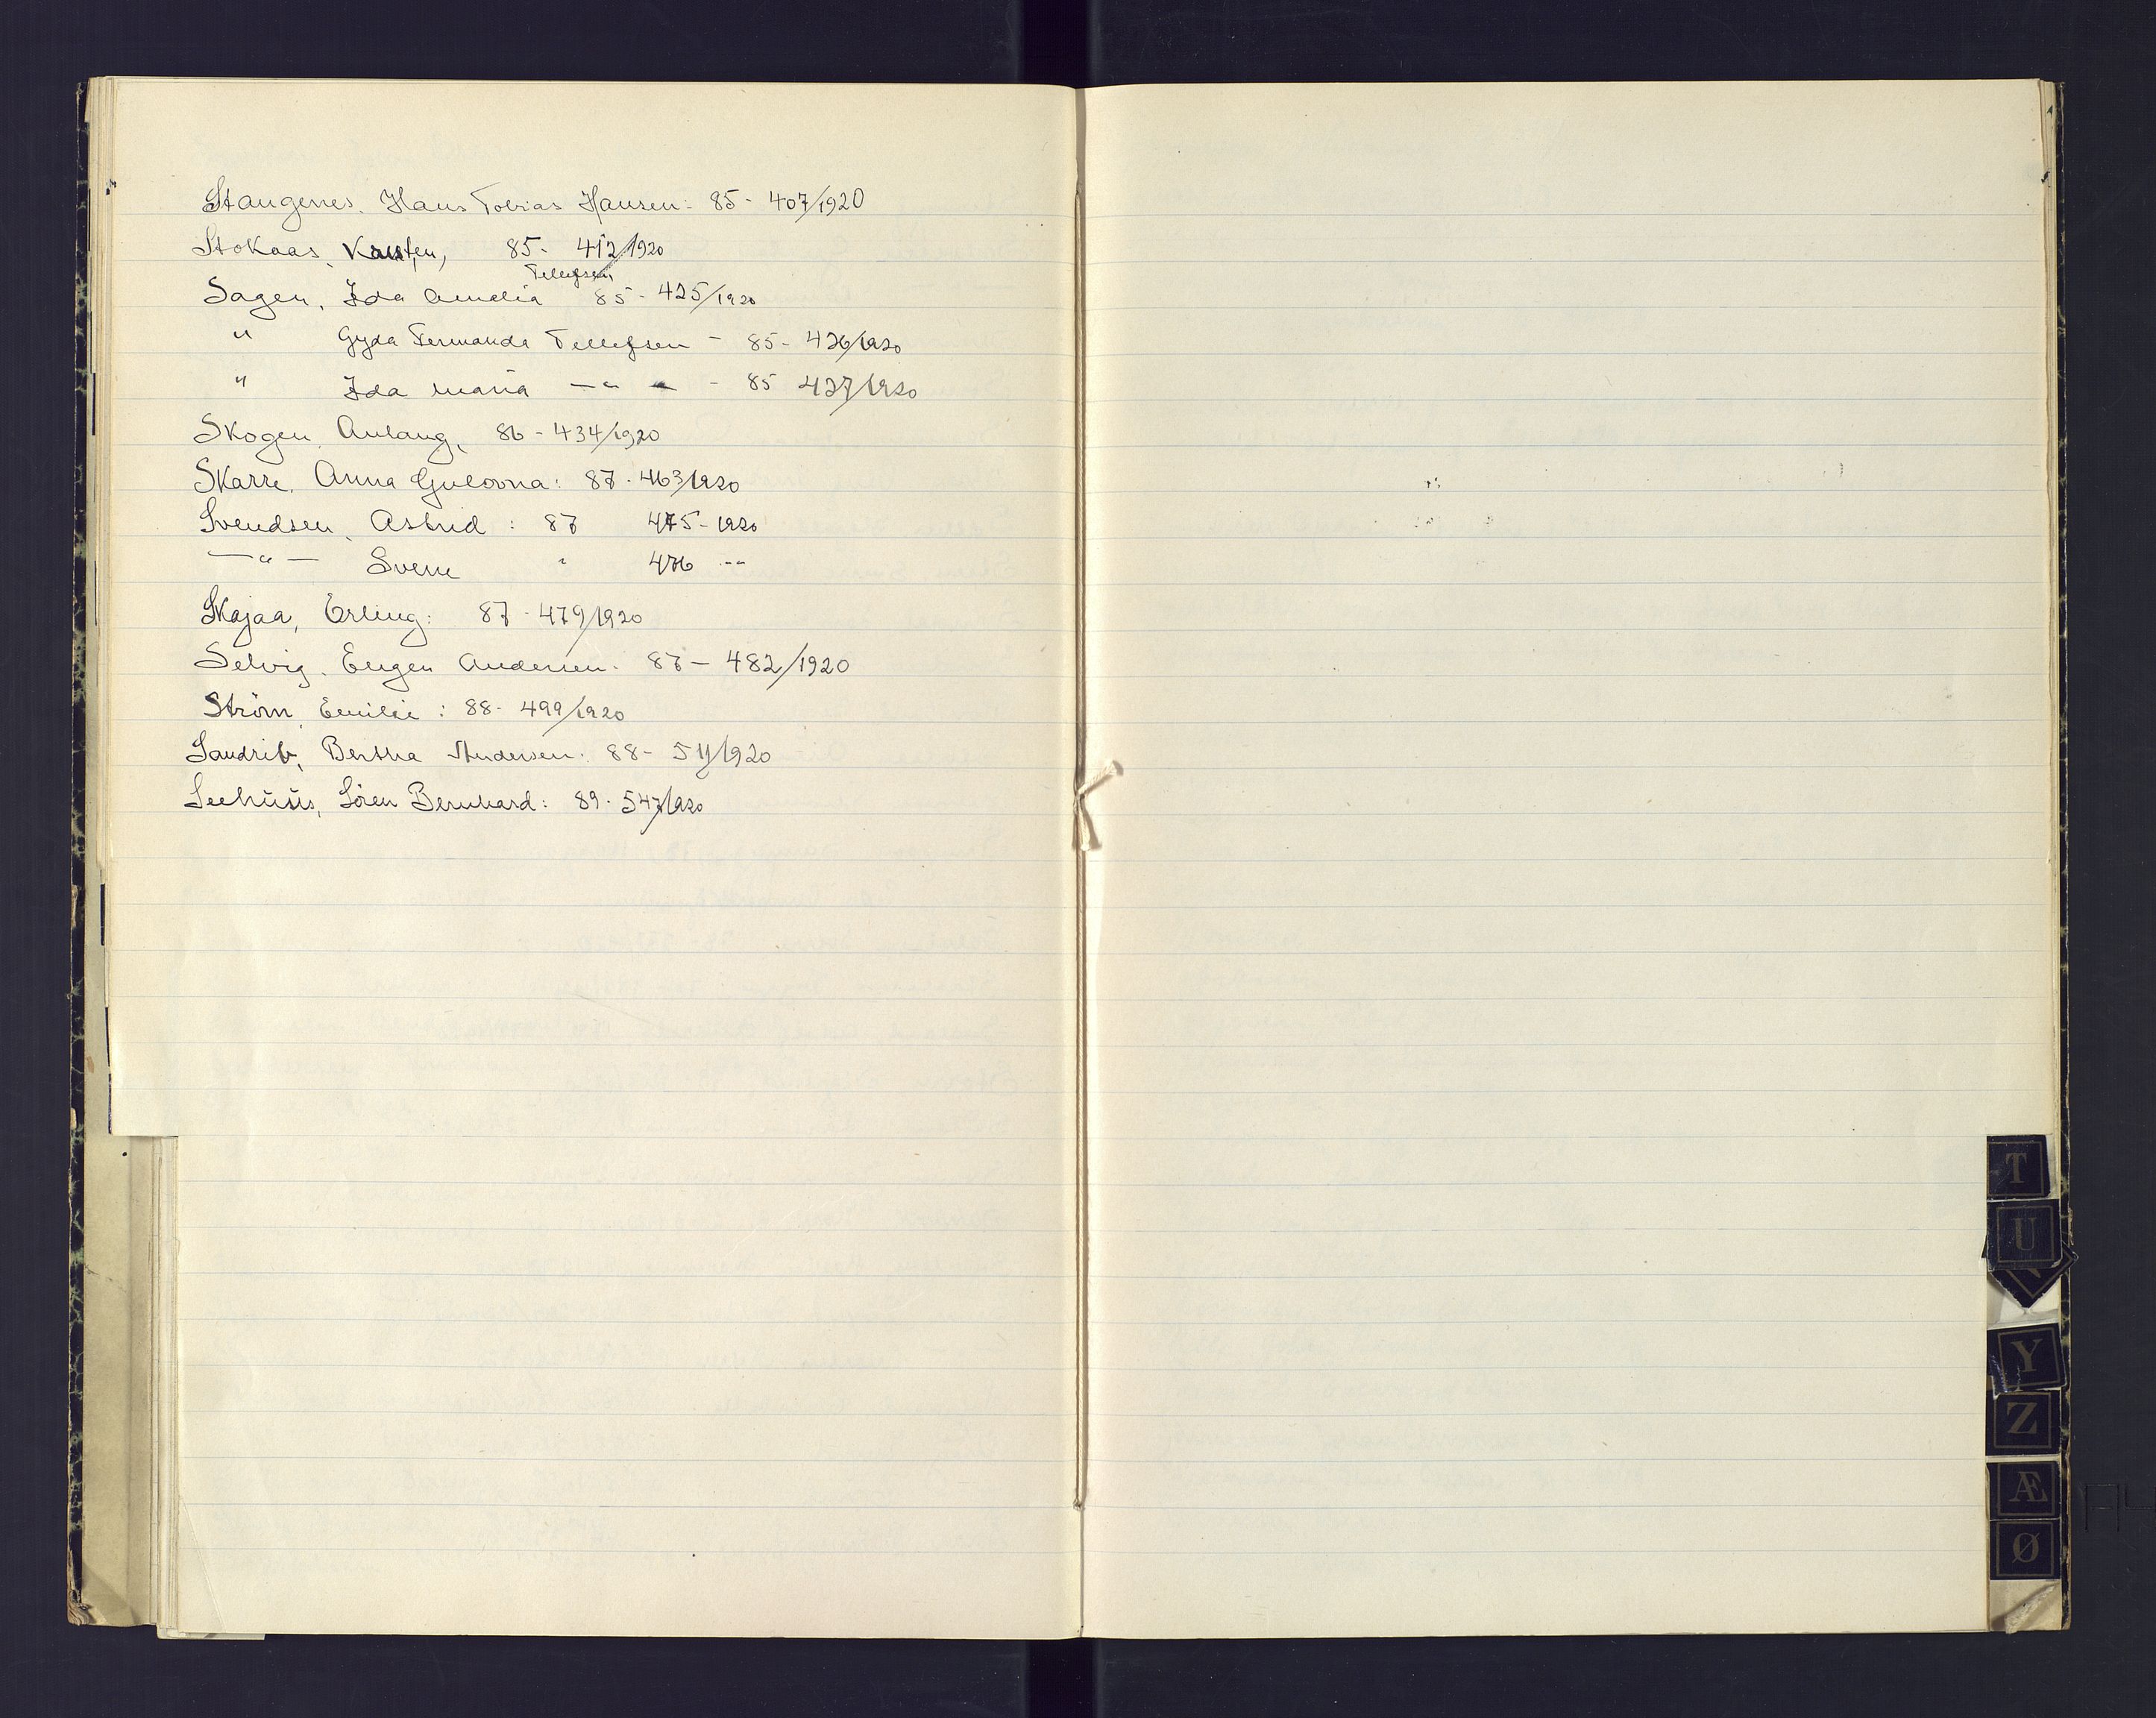 Stangenes, Hans Tobias Hansen: 85- 407/1920
Stokaas, Karsten, 85- 412/1920
Tellefsen
Sagen, Ida Amelia 85- 425/1920
" Gyda Fermanda Tellefsen - 85- 426/1920
" Ida Maria -"- - 85 427/1920
Skogen, Anlaug, 86 - 434/1920
Skarre, Anna Gulovna: 87- 463/1920
Svendsen, Astrid: 87 475-1920
-"- Svere " 476 --
Skajaa, Erling: 87- 479/1920
Selvig, Eugen Andersen. 87- 482/1920
Ström, Emilie: 88- 499/1920
Sandrib, Bertha Andersen: 88- 511/1920
Seehuus, Sören Bernhard: 89- 547/1920
T
U
V
Y
Z
Æ
Ø